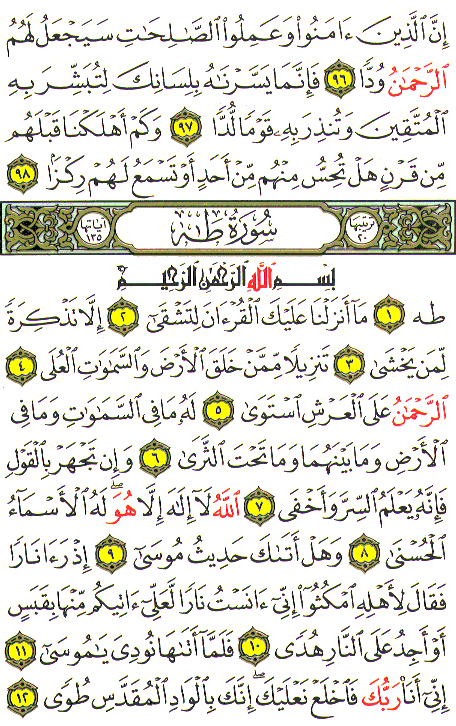 إِنَّ ٱلَّذِينَ ءَامَنُوا۟ وَعَمِلُوا۟ ٱلصَّـٰلِحَـٰتِ سَيَجْعَلُ لَهُمُ
ٱلرَّحْمَـٰنُ وُدًّا ٩٦ فَإِنَّمَا يَسَّرْنَـٰهُ بِلِسَانِكَ لِتُبَشِّرَ بِهِ
ٱلْمُتَّقِينَ وَتُنذِرَ بِهِۦ قَوْمًا لُّدًّا ٩٧ وَكَمْ أَهْلَكْنَا قَبْلَهُم
مِّن قَرْنٍ هَلْ تُحِسُّ مِنْهُم مِّنْ أَحَدٍ أَوْ تَسْمَعُ لَهُمْ رِكْزًۢا ٩٨
ترتيبها ٢٠ سُورَةُ طه اياتها ١٣٥
بِسْمِ ٱللَّهِ ٱلرَّحْمَـٰنِ ٱلرَّحِيمِ
طه ١ مَآ أَنزَلْنَا عَلَيْكَ ٱلْقُرْءَانَ لِتَشْقَىٰٓ ٢ إِلَّا تَذْكِرَةً
لِّمَن يَخْشَىٰ ٣ تَنزِيلًا مِّمَّنْ خَلَقَ ٱلْأَرْضَ وَٱلسَّمَـٰوَٰتِ ٱلْعُلَى ٤
ٱلرَّحْمَـٰنُ عَلَى ٱلْعَرْشِ ٱسْتَوَىٰ ٥ لَهُۥ مَا فِى ٱلسَّمَـٰوَٰتِ وَمَا فِى
ٱلْأَرْضِ وَمَا بَيْنَهُمَا وَمَا تَحْتَ ٱلثَّرَىٰ ٦ وَإِن تَجْهَرْ بِٱلْقَوْلِ
فَإِنَّهُۥ يَعْلَمُ ٱلسِّرَّ وَأَخْفَى ٧ ٱللَّهُ لَآ إِلَـٰهَ إِلَّا هُوَ ۖ لَهُ ٱلْأَسْمَآءُ
ٱلْحُسْنَىٰ ٨ وَهَلْ أَتَىٰكَ حَدِيثُ مُوسَىٰٓ ٩ إِذْ رَءَا نَارًا
فَقَالَ لِأَهْلِهِ ٱمْكُثُوٓا۟ إِنِّىٓ ءَانَسْتُ نَارًا لَّعَلِّىٓ ءَاتِيكُم مِّنْهَا بِقَبَسٍ
أَوْ أَجِدُ عَلَى ٱلنَّارِ هُدًى ١٠ فَلَمَّآ أَتَىٰهَا نُودِىَ يَـٰمُوسَىٰٓ ١١
إِنِّىٓ أَنَا۠ رَبُّكَ فَٱخْلَعْ نَعْلَيْكَ ۖ إِنَّكَ بِٱلْوَادِ ٱلْمُقَدَّسِ طُوًى ١٢